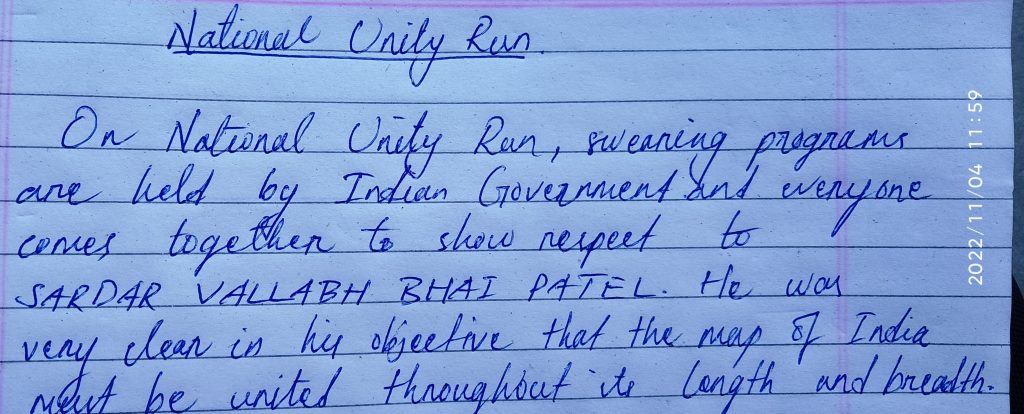 National Unity Run.
On National Unity Run, swearing programs
are held by Indian Government and everyone
comes together to show respect to
SARDAR VALLABH BHAI PATEL. He was
very clear in his objective that the map of India
must be united throughout its length and breadth.
2022/11/04 11:59